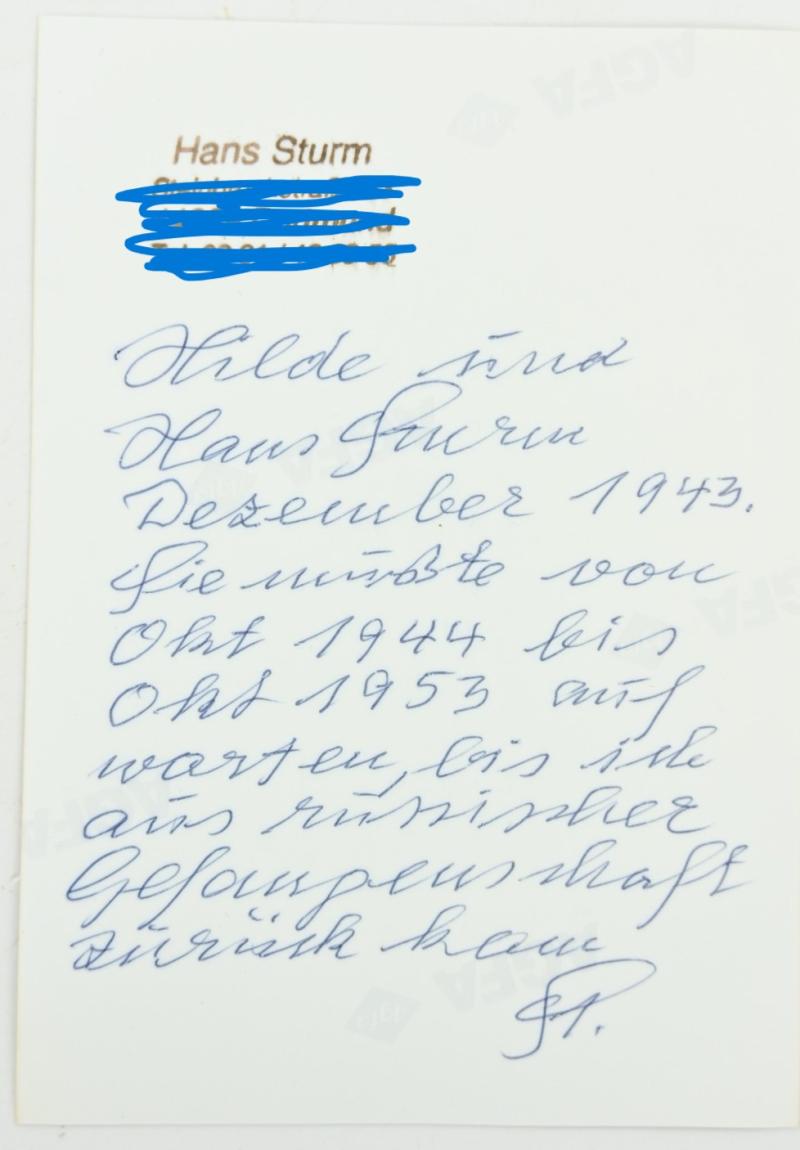 Hans Sturm
Hilde und
Hans Sturm
Dezember 1943.
Sie mußte von
Okt 1944 bis
Okt 1953 auf
warten, bis ich
aus russischer
Gefangenschaft
zurück kam
St.
AGFA
AGFA
AGFA
AGFA